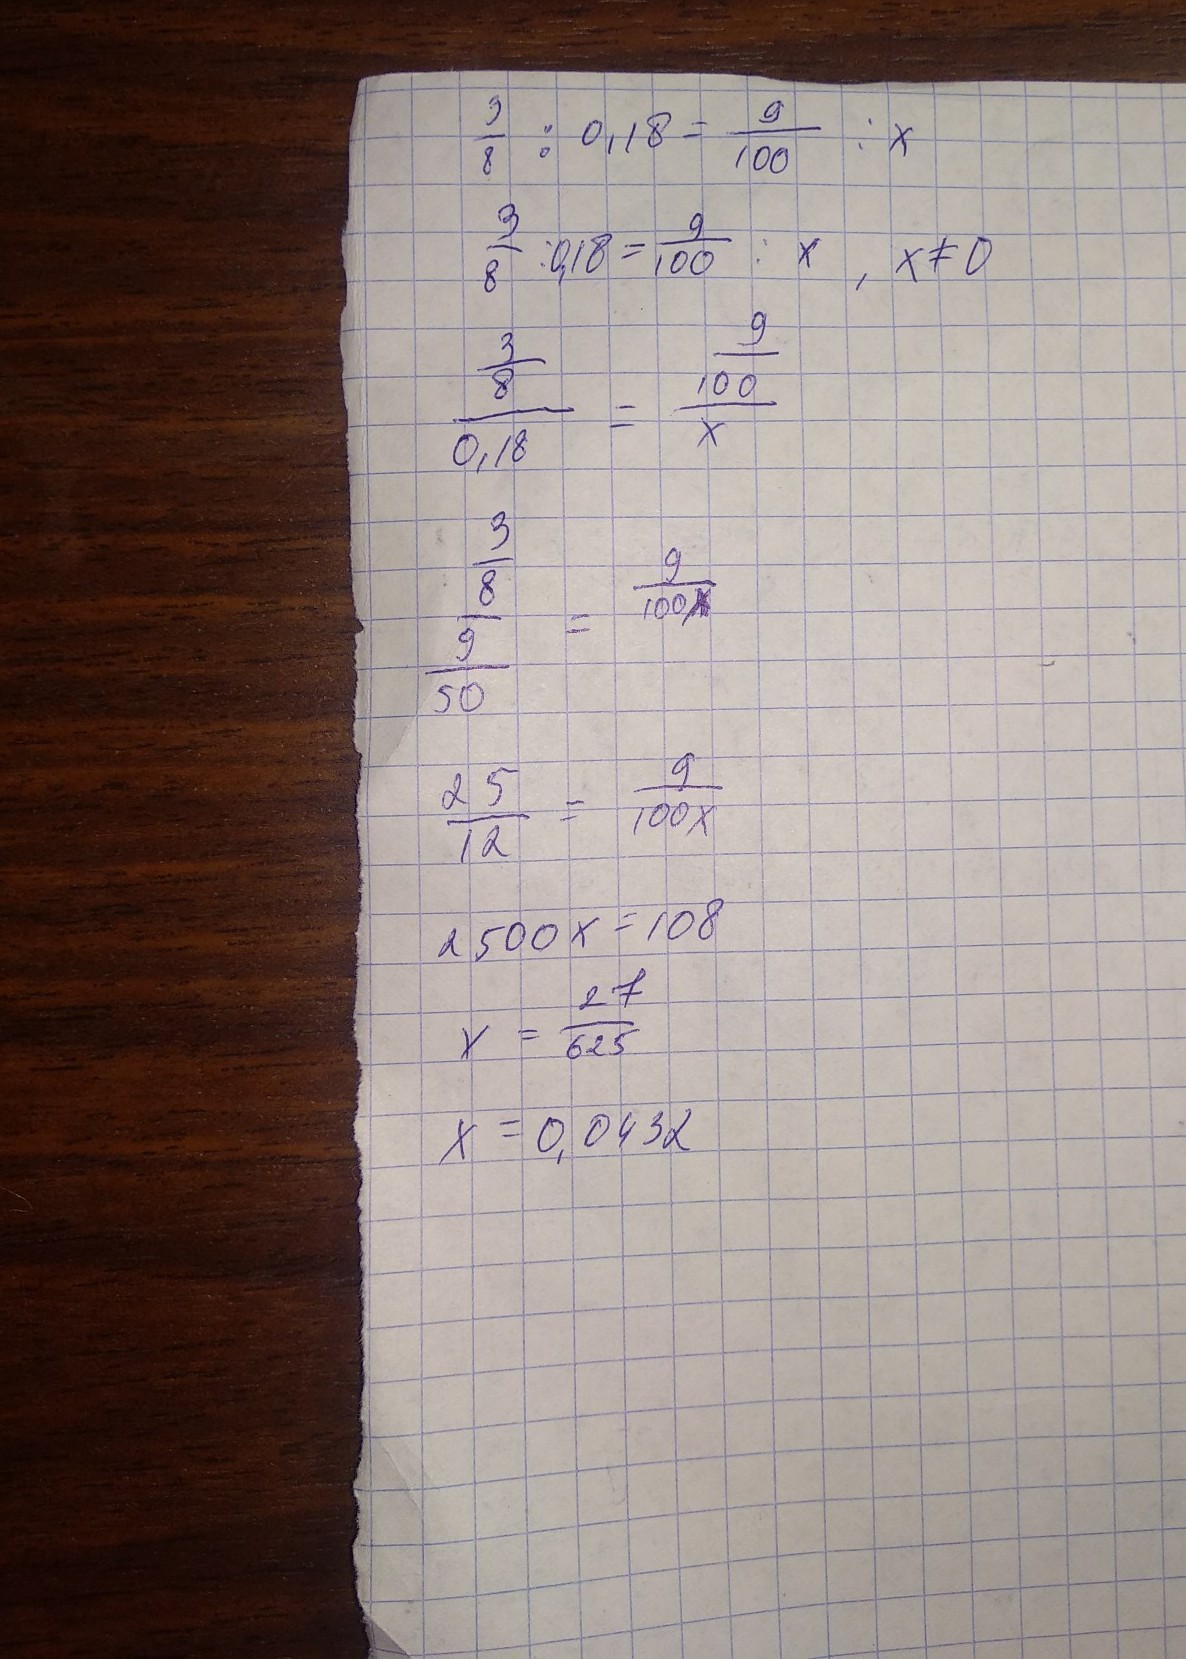 3/8 : 0,18 = 9/100 : x
3/8 : 0,18 = 9/100 : x , x ≠ 0
(3/8)/0,18 = (9/100)/x
(3/8)/(9/50) = 9/100x
25/12 = 9/100x
2500x = 108
x = 27/625
x = 0,0432